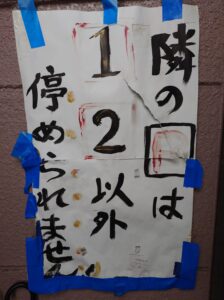 隣の□は
１ ２ 以外
停められません